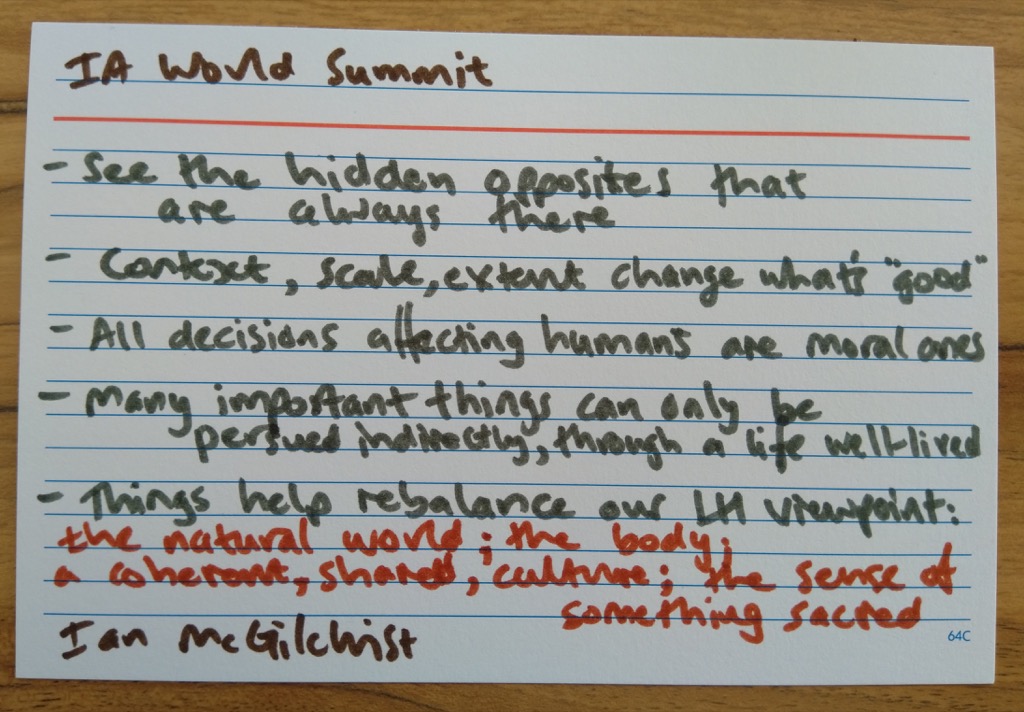 IA World Summit
- See the hidden opposites that
are always there
- Context, scale, extent change what's "good"
- All decisions affecting humans are moral ones
- Many important things can only be
persued indirectly, through a life well-lived
- Things help rebalance our LH viewpoint:
the natural world; the body;
a coherent, shared, culture; the sense of
something sacred
Ian McGilchrist
64C